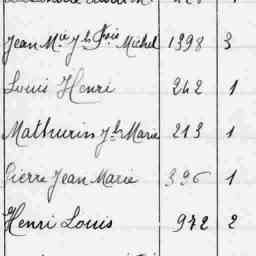 Jean Mie Jh Fois Michel 1398 3
Louis Henri 242 1
Mathurin Jh Marie 213 1
Pierre Jean Marie 396 1
Henri Louis 972 2